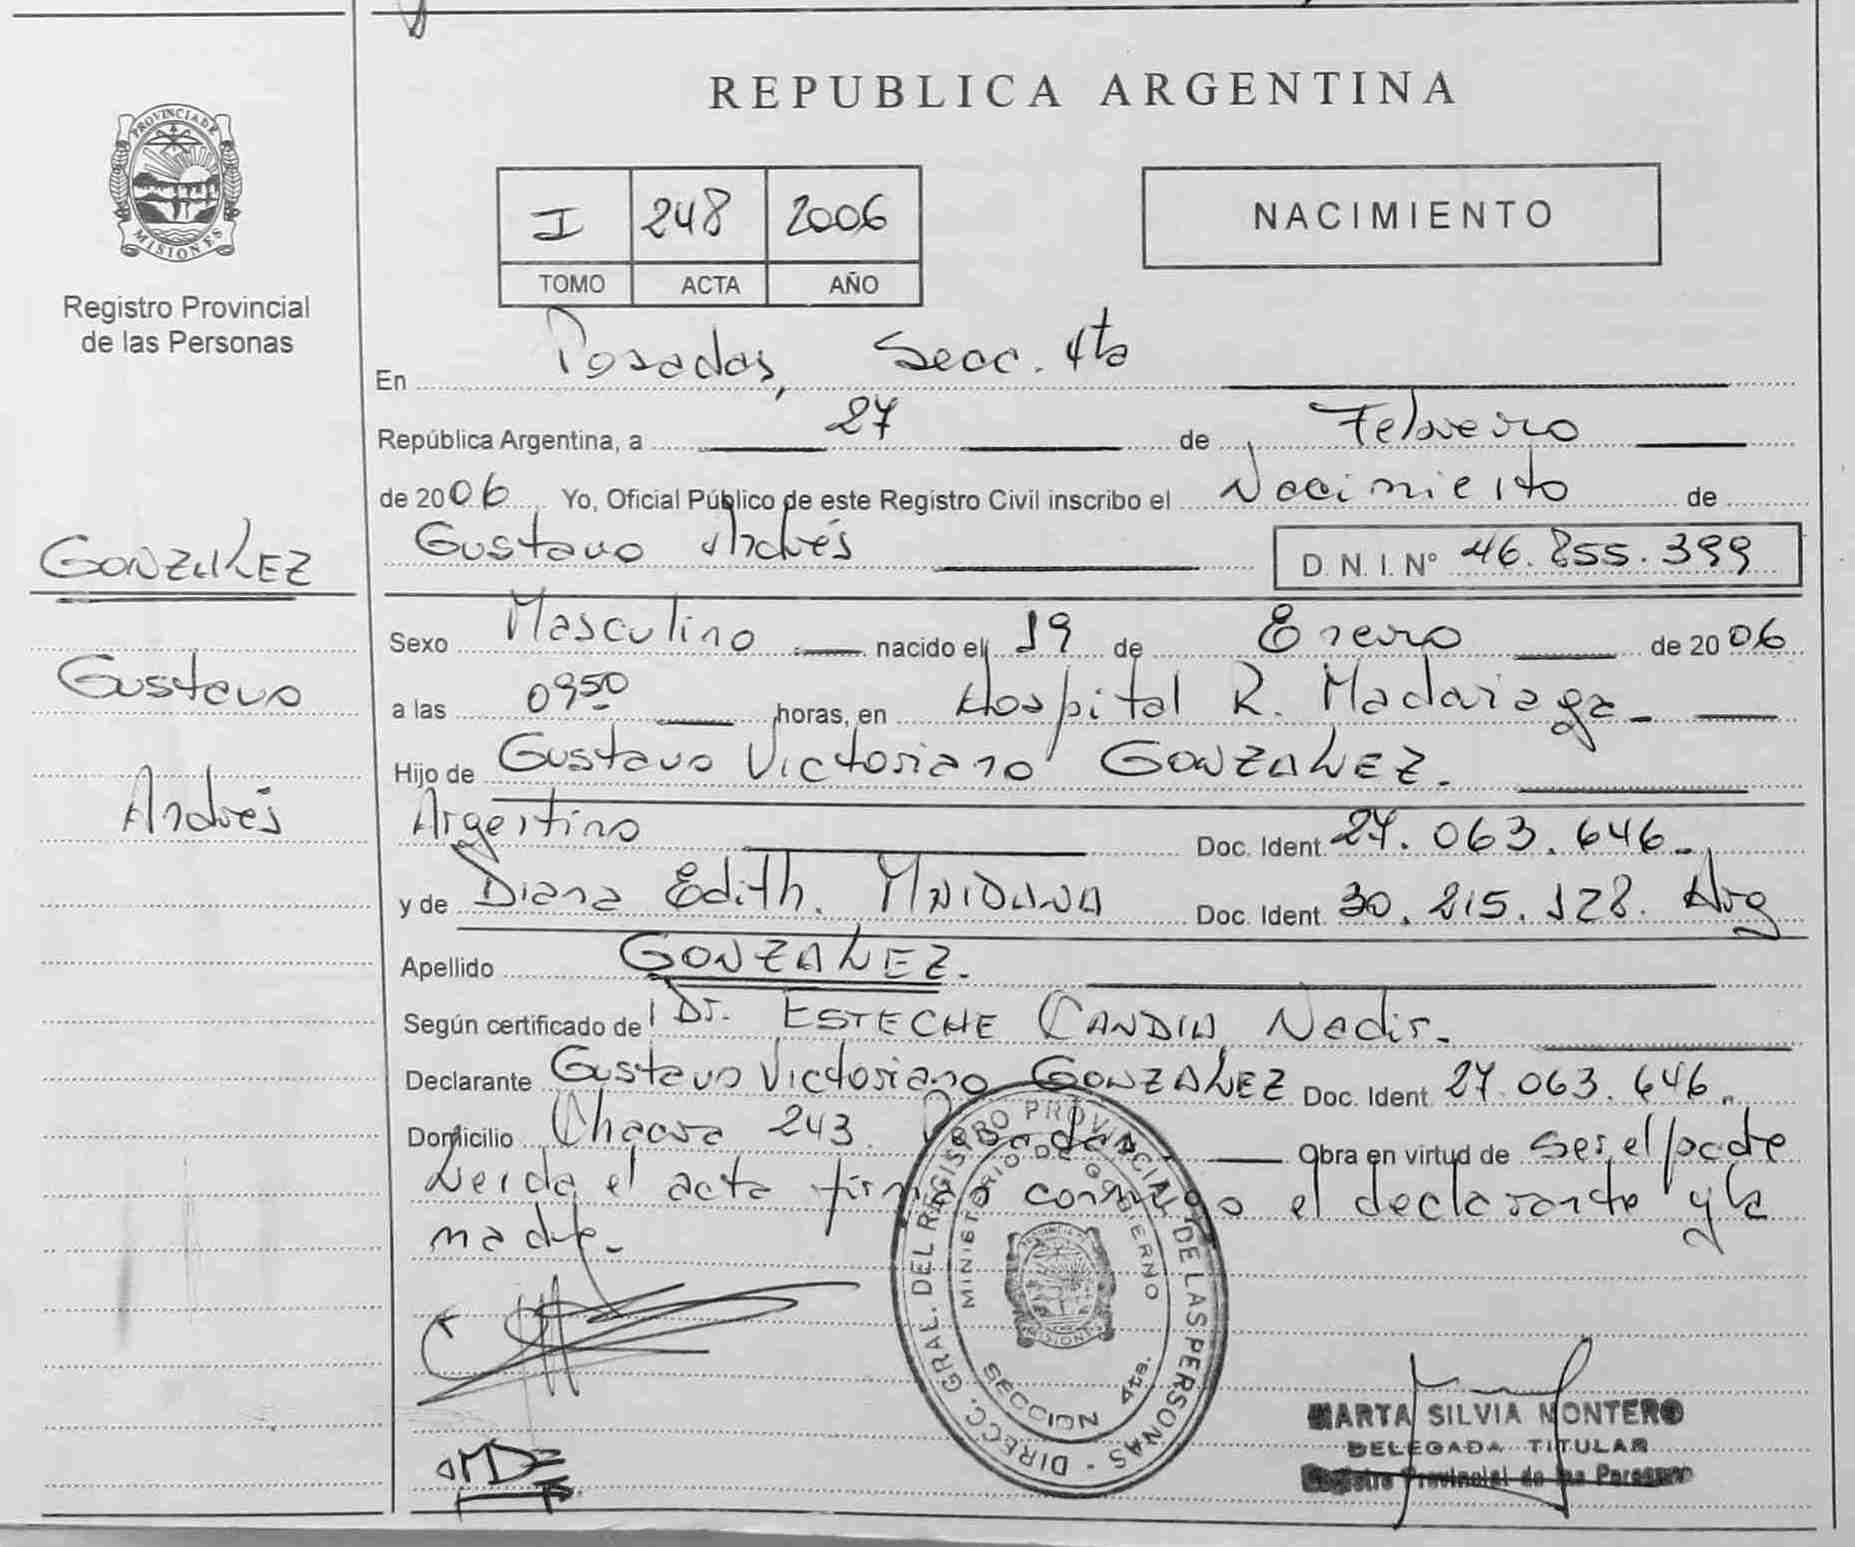 REPUBLICA ARGENTINA
PROVINCIA DE
MISIONES
Registro Provincial
de las Personas
I 248 2006
TOMO ACTA AÑO
NACIMIENTO
En Posadas, Secc. 4ta
República Argentina, a 27 de Febrero
de 2006 Yo, Oficial Público de este Registro Civil inscribo el Nacimiento de
GONZALEZ
Gustavo Andrés D.N.I. Nº 46.855.399
Sexo Masculino nacido el 19 de Enero de 2006
Gustavo
a las 0950 horas, en Hospital R. Madariaga
Hijo de Gustavo Victoriano GONZALEZ.
Andrés
Argentino Doc. Ident. 27.063.646.
y de Diana Edith. MAIDANA Doc. Ident. 30.215.128. Arg
Apellido GONZALEZ.
Según certificado de Dr. ESTECHE CANDIA Nadir.
Declarante Gustavo Victoriano GONZALEZ Doc. Ident. 27.063.646.
Domicilio Chacra 243. Posadas Obra en virtud de ser el padre
Leida el acta firman conmigo el declarante y la
madre.
DIRECC. GRAL. DEL REGISTRO PROVINCIAL DE LAS PERSONAS
MINISTERIO DE GOBIERNO
SECCION 4ta.
MARTA SILVIA MONTERO
DELEGADA TITULAR
Registro Provincial de las Personas